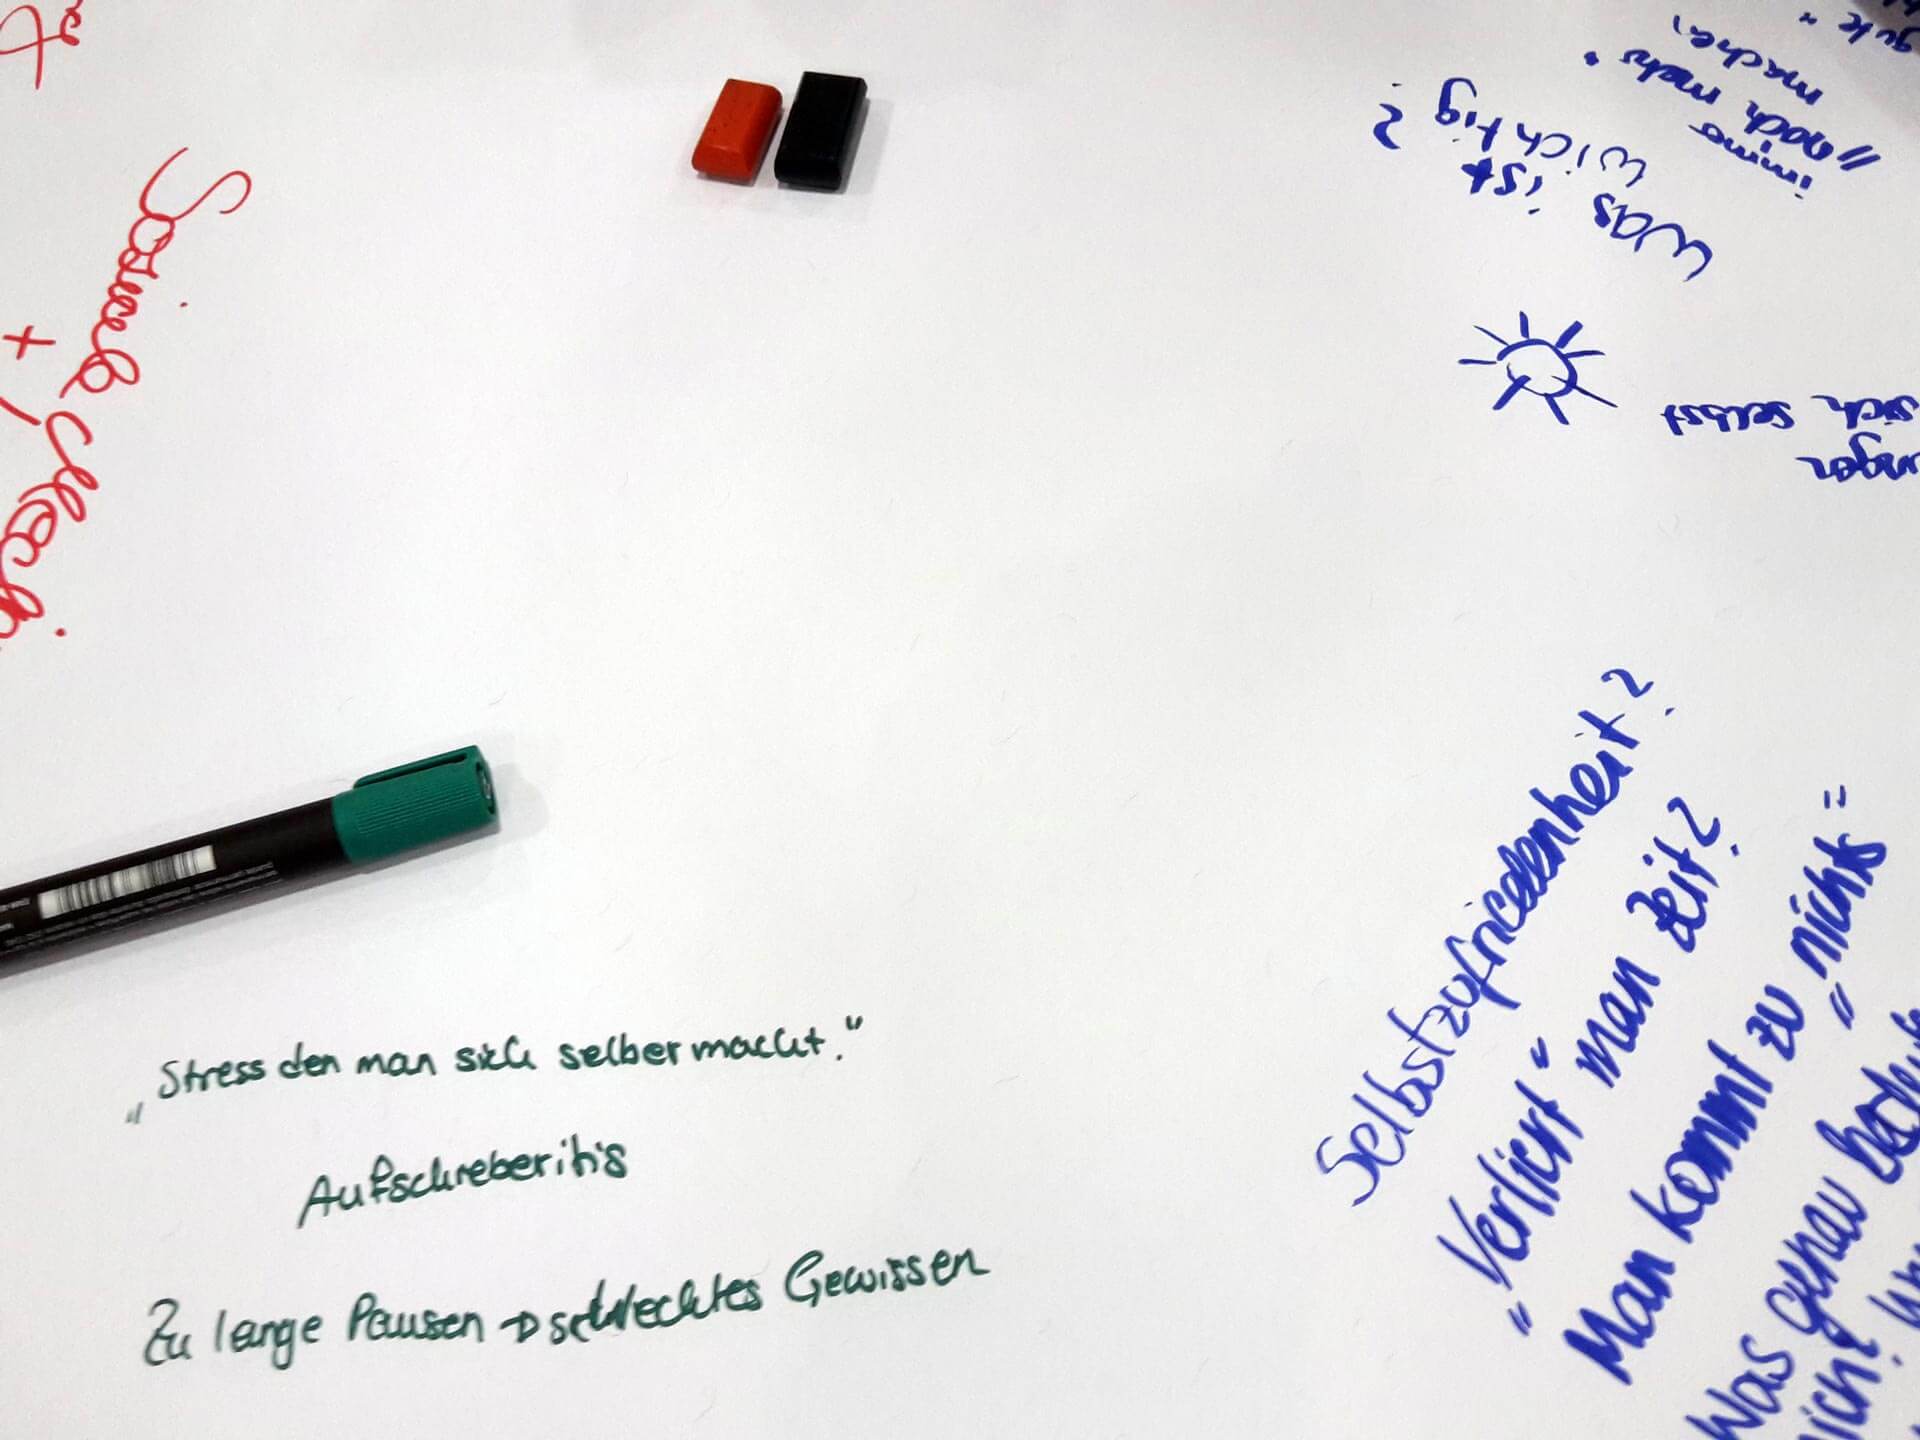 „Stress den man sich selber macht."
Aufschreberitis
Zu lange Pausen → schlechtes Gewissen
Selbstzufriedenheit?
„Verliert" man Zeit?
Man kommt zu „nichts"
Was genau
Was ist
wichtig?
immer
„noch mehr"
machen,
gute"
sich selbst